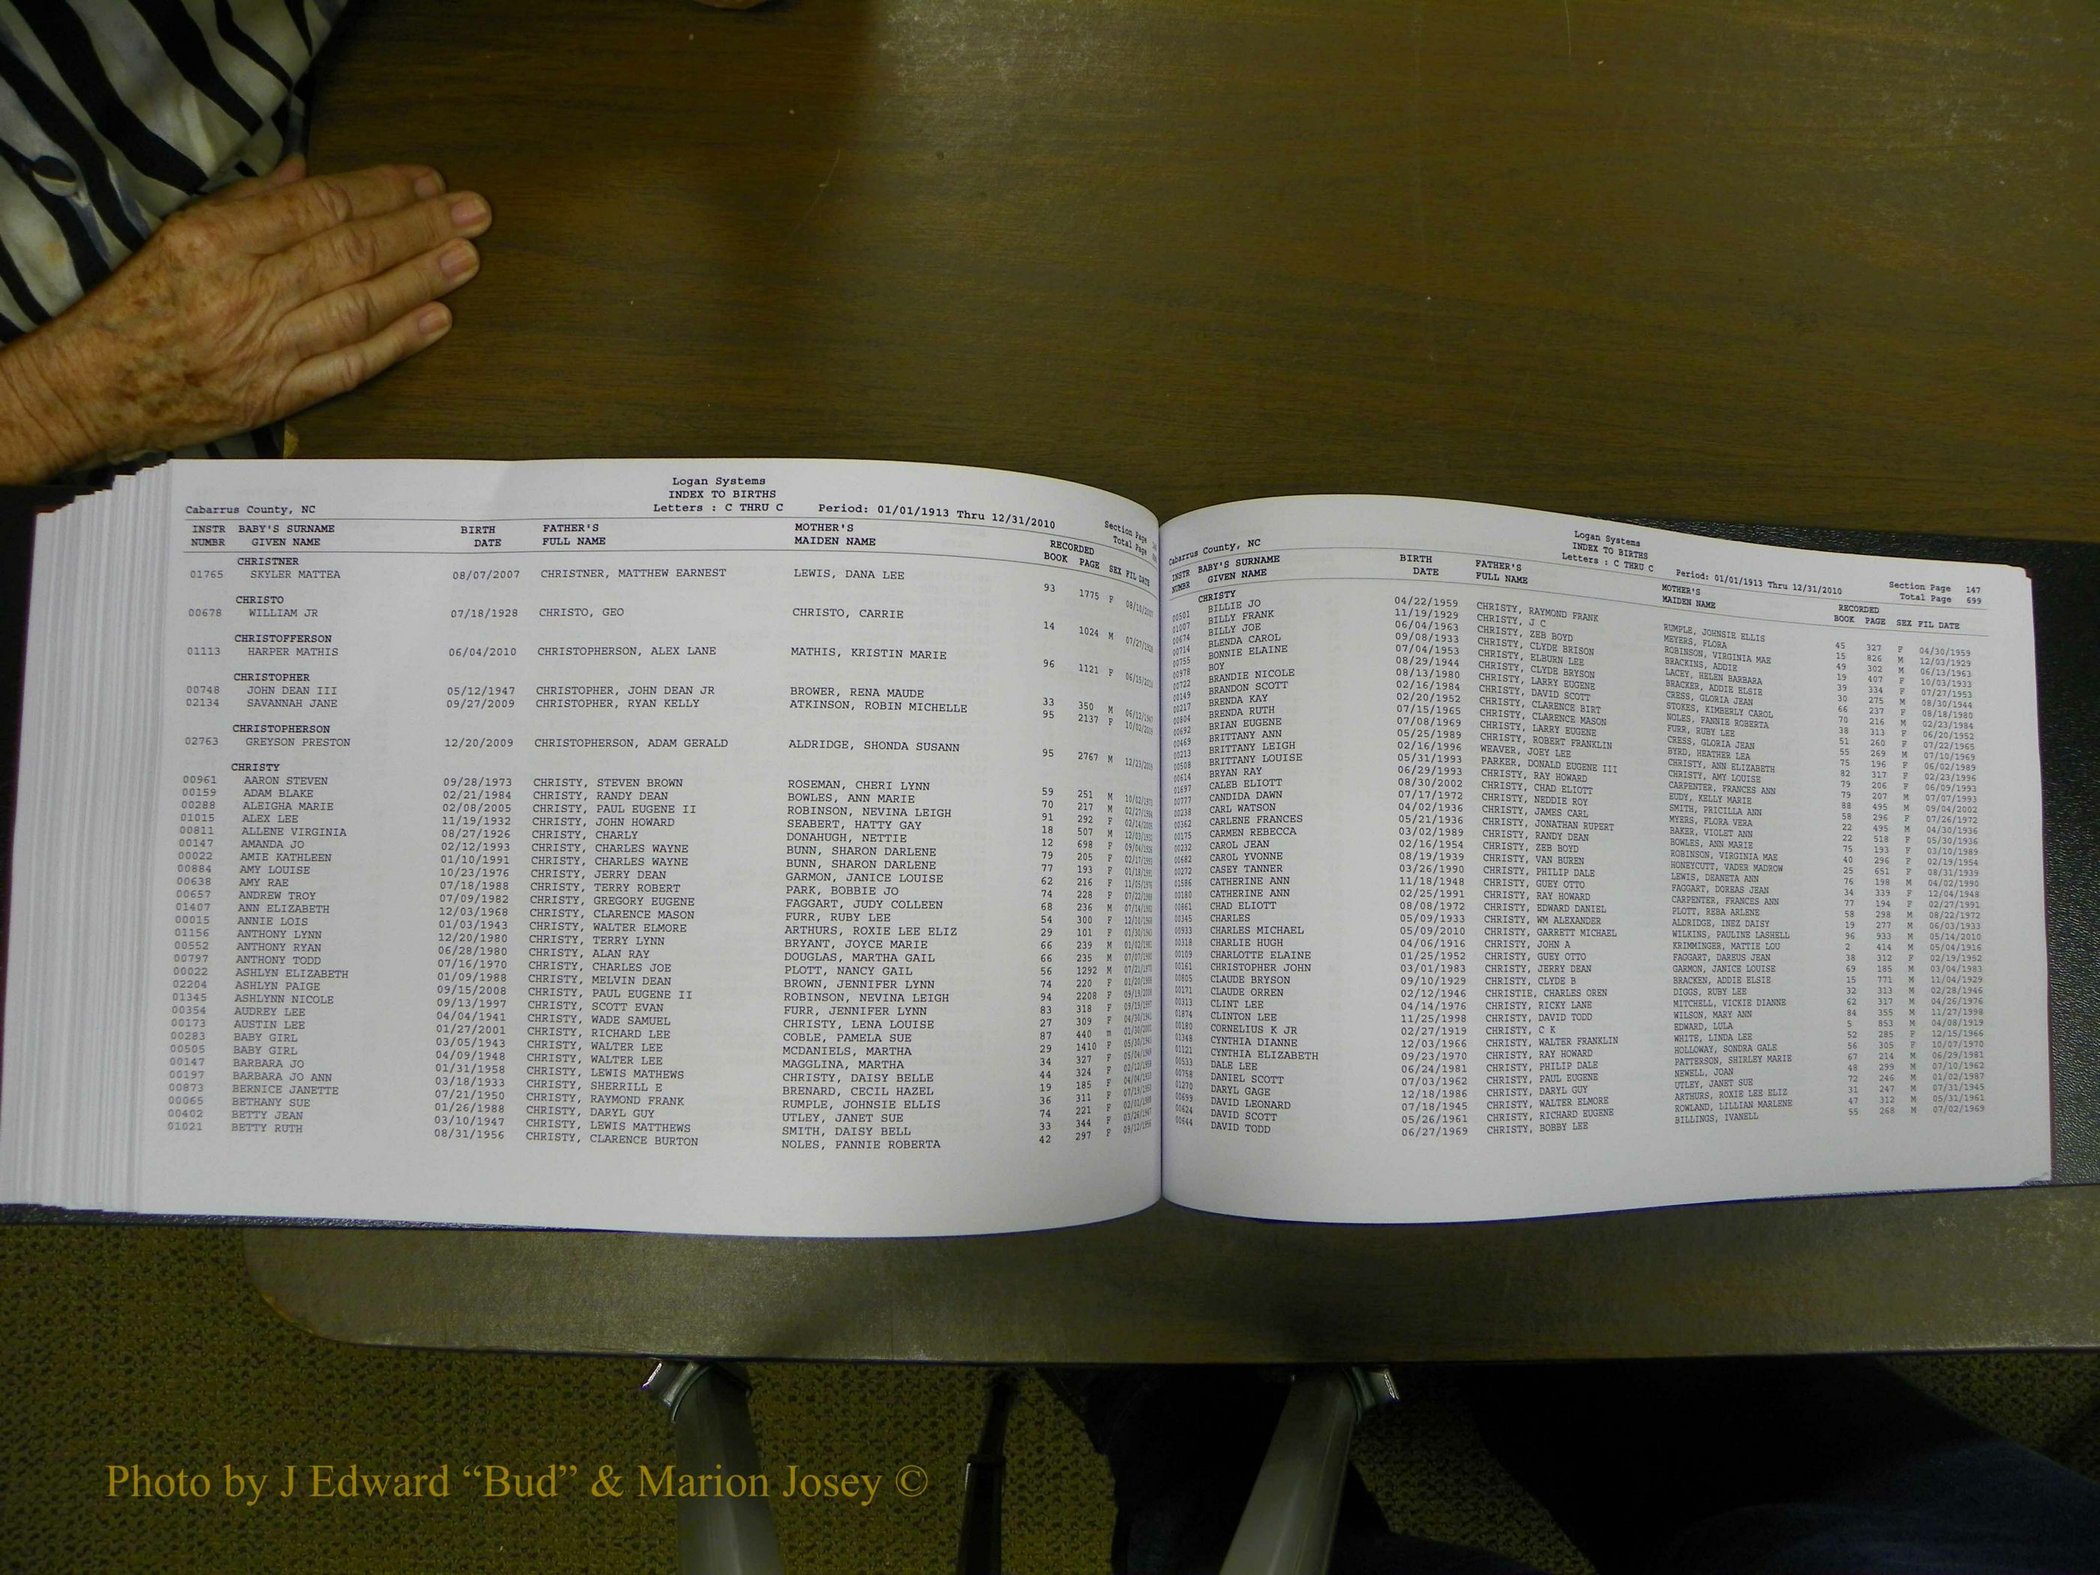 Logan Systems
INDEX TO BIRTHS
Cabarrus County, NC Letters : C THRU C Period: 01/01/1913 Thru 12/31/2010 Section Page
Total Page
INSTR BABY'S SURNAME BIRTH FATHER'S MOTHER'S RECORDED
NUMBR GIVEN NAME DATE FULL NAME MAIDEN NAME BOOK PAGE SEX FIL DATE
CHRISTNER
01765 SKYLER MATTEA 08/07/2007 CHRISTNER, MATTHEW EARNEST LEWIS, DANA LEE 93 1775 F
CHRISTO
00678 WILLIAM JR 07/18/1928 CHRISTO, GEO CHRISTO, CARRIE 14 1024 M
CHRISTOFFERSON
01113 HARPER MATHIS 06/04/2010 CHRISTOPHERSON, ALEX LANE MATHIS, KRISTIN MARIE 96 1121 F
CHRISTOPHER
00748 JOHN DEAN III 05/12/1947 CHRISTOPHER, JOHN DEAN JR BROWER, RENA MAUDE 33 350 M
02134 SAVANNAH JANE 09/27/2009 CHRISTOPHER, RYAN KELLY ATKINSON, ROBIN MICHELLE 95 2137 F
CHRISTOPHERSON
02763 GREYSON PRESTON 12/20/2009 CHRISTOPHERSON, ADAM GERALD ALDRIDGE, SHONDA SUSANN 95 2767 M
CHRISTY
00961 AARON STEVEN 09/28/1973 CHRISTY, STEVEN BROWN ROSEMAN, CHERI LYNN 59 251 M
00159 ADAM BLAKE 02/21/1984 CHRISTY, RANDY DEAN BOWLES, ANN MARIE 70 217 M
00288 ALEIGHA MARIE 02/08/2005 CHRISTY, PAUL EUGENE II ROBINSON, NEVINA LEIGH 91 292 F
01015 ALEX LEE 11/19/1932 CHRISTY, JOHN HOWARD SEABERT, HATTY GAY 18 507 M
00811 ALLENE VIRGINIA 08/27/1926 CHRISTY, CHARLY DONAHUGH, NETTIE 12 698 F
00147 AMANDA JO 02/12/1993 CHRISTY, CHARLES WAYNE BUNN, SHARON DARLENE 79 205 F
00022 AMIE KATHLEEN 01/10/1991 CHRISTY, CHARLES WAYNE BUNN, SHARON DARLENE 77 193 F
00884 AMY LOUISE 10/23/1976 CHRISTY, JERRY DEAN GARMON, JANICE LOUISE 62 216 F
00638 AMY RAE 07/18/1988 CHRISTY, TERRY ROBERT PARK, BOBBIE JO 74 228 F
00657 ANDREW TROY 07/09/1982 CHRISTY, GREGORY EUGENE FAGGART, JUDY COLLEEN 68 236 M
01407 ANN ELIZABETH 12/03/1968 CHRISTY, CLARENCE MASON FURR, RUBY LEE 54 300 F
00015 ANNIE LOIS 01/03/1943 CHRISTY, WALTER ELMORE ARTHURS, ROXIE LEE ELIZ 29 101 F
01156 ANTHONY LYNN 12/20/1980 CHRISTY, TERRY LYNN BRYANT, JOYCE MARIE 66 239 M
00552 ANTHONY RYAN 06/28/1980 CHRISTY, ALAN RAY DOUGLAS, MARTHA GAIL 66 235 M
00797 ANTHONY TODD 07/16/1970 CHRISTY, CHARLES JOE PLOTT, NANCY GAIL 56 1292 M
00022 ASHLYN ELIZABETH 01/09/1988 CHRISTY, MELVIN DEAN BROWN, JENNIFER LYNN 74 220 F
02204 ASHLYN PAIGE 09/15/2008 CHRISTY, PAUL EUGENE II ROBINSON, NEVINA LEIGH 94 2208 F
01345 ASHLYNN NICOLE 09/13/1997 CHRISTY, SCOTT EVAN FURR, JENNIFER LYNN 83 318 F
00354 AUDREY LEE 04/04/1941 CHRISTY, WADE SAMUEL CHRISTY, LENA LOUISE 27 309 F
00173 AUSTIN LEE 01/27/2001 CHRISTY, RICHARD LEE COBLE, PAMELA SUE 87 440 m
00283 BABY GIRL 03/05/1943 CHRISTY, WALTER LEE MCDANIELS, MARTHA 29 1410 F
00505 BABY GIRL 04/09/1948 CHRISTY, WALTER LEE MAGGLINA, MARTHA 34 327 F
00147 BARBARA JO 01/31/1958 CHRISTY, LEWIS MATHEWS CHRISTY, DAISY BELLE 44 324 F
00197 BARBARA JO ANN 03/18/1933 CHRISTY, SHERRILL E BRENARD, CECIL HAZEL 19 185 F
00873 BERNICE JANETTE 07/21/1950 CHRISTY, RAYMOND FRANK RUMPLE, JOHNSIE ELLIS 36 311 F
00065 BETHANY SUE 01/26/1988 CHRISTY, DARYL GUY UTLEY, JANET SUE 74 221 F
00402 BETTY JEAN 03/10/1947 CHRISTY, LEWIS MATTHEWS SMITH, DAISY BELL 33 344 F
01021 BETTY RUTH 08/31/1956 CHRISTY, CLARENCE BURTON NOLES, FANNIE ROBERTA 42 297 F
Logan Systems
INDEX TO BIRTHS
Cabarrus County, NC Letters : C THRU C Period: 01/01/1913 Thru 12/31/2010 Section Page 147
Total Page 699
INSTR BABY'S SURNAME BIRTH FATHER'S MOTHER'S RECORDED
NUMBR GIVEN NAME DATE FULL NAME MAIDEN NAME BOOK PAGE SEX FIL DATE
CHRISTY
00501 BILLIE JO 04/22/1959 CHRISTY, RAYMOND FRANK RUMPLE, JOHNSIE ELLIS 45 327 F 04/30/1959
01007 BILLY FRANK 11/19/1929 CHRISTY, J C MEYERS, FLORA 15 826 M 12/03/1929
00674 BILLY JOE 06/04/1963 CHRISTY, ZEB BOYD ROBINSON, VIRGINIA MAE 49 302 M 06/13/1963
00714 BLENDA CAROL 09/08/1933 CHRISTY, CLYDE BRISON BRACKINS, ADDIE 19 407 F 10/03/1933
00755 BONNIE ELAINE 07/04/1953 CHRISTY, ELBURN LEE LACEY, HELEN BARBARA 39 334 F 07/27/1953
00978 BOY 08/29/1944 CHRISTY, CLYDE BRYSON BRACKER, ADDIE ELSIE 30 275 M 08/30/1944
00722 BRANDIE NICOLE 08/13/1980 CHRISTY, LARRY EUGENE CRESS, GLORIA JEAN 66 237 F 08/18/1980
00149 BRANDON SCOTT 02/16/1984 CHRISTY, DAVID SCOTT STOKES, KIMBERLY CAROL 70 216 M 02/23/1984
00217 BRENDA KAY 02/20/1952 CHRISTY, CLARENCE BIRT NOLES, FANNIE ROBERTA 38 313 F 06/20/1952
00804 BRENDA RUTH 07/15/1965 CHRISTY, CLARENCE MASON FURR, RUBY LEE 51 260 F 07/22/1965
00692 BRIAN EUGENE 07/08/1969 CHRISTY, LARRY EUGENE CRESS, GLORIA JEAN 55 269 M 07/10/1969
00469 BRITTANY ANN 05/25/1989 CHRISTY, ROBERT FRANKLIN BYRD, HEATHER LEA 75 196 F 06/02/1989
00213 BRITTANY LEIGH 02/16/1996 WEAVER, JOEY LEE CHRISTY, ANN ELIZABETH 82 317 F 02/23/1996
00508 BRITTANY LOUISE 05/31/1993 PARKER, DONALD EUGENE III CHRISTY, AMY LOUISE 79 206 F 06/09/1993
00614 BRYAN RAY 06/29/1993 CHRISTY, RAY HOWARD CARPENTER, FRANCES ANN 79 207 M 07/07/1993
01697 CALEB ELIOTT 08/30/2002 CHRISTY, CHAD ELIOTT EUDY, KELLY MARIE 88 495 M 09/04/2002
00777 CANDIDA DAWN 07/17/1972 CHRISTY, NEDDIE ROY SMITH, PRICILLA ANN 58 296 F 07/26/1972
00238 CARL WATSON 04/02/1936 CHRISTY, JAMES CARL MYERS, FLORA VERA 22 495 M 04/30/1936
00362 CARLENE FRANCES 05/21/1936 CHRISTY, JONATHAN RUPERT BAKER, VIOLET ANN 22 518 F 05/30/1936
00175 CARMEN REBECCA 03/02/1989 CHRISTY, RANDY DEAN BOWLES, ANN MARIE 75 193 F 03/10/1989
00232 CAROL JEAN 02/16/1954 CHRISTY, ZEB BOYD ROBINSON, VIRGINIA MAE 40 296 F 02/19/1954
00682 CAROL YVONNE 08/19/1939 CHRISTY, VAN BUREN HONEYCUTT, VADER MADROW 25 651 F 08/31/1939
00272 CASEY TANNER 03/26/1990 CHRISTY, PHILIP DALE LEWIS, DEANETA ANN 76 198 M 04/02/1990
01586 CATHERINE ANN 11/18/1948 CHRISTY, GUEY OTTO FAGGART, DOREAS JEAN 34 339 F 12/04/1948
00180 CATHERINE ANN 02/25/1991 CHRISTY, RAY HOWARD CARPENTER, FRANCES ANN 77 194 F 02/27/1991
00861 CHAD ELIOTT 08/08/1972 CHRISTY, EDWARD DANIEL PLOTT, REBA ARLENE 58 298 M 08/22/1972
00345 CHARLES 05/09/1933 CHRISTY, WM ALEXANDER ALDRIDGE, INEZ DAISY 19 277 M 06/03/1933
00933 CHARLES MICHAEL 05/09/2010 CHRISTY, GARRETT MICHAEL WILKINS, PAULINE LASHELL 96 933 M 05/14/2010
00318 CHARLIE HUGH 04/06/1916 CHRISTY, JOHN A KRIMMINGER, MATTIE LOU 2 414 M 05/04/1916
00109 CHARLOTTE ELAINE 01/25/1952 CHRISTY, GUEY OTTO FAGGART, DAREUS JEAN 38 312 F 02/19/1952
00161 CHRISTOPHER JOHN 03/01/1983 CHRISTY, JERRY DEAN GARMON, JANICE LOUISE 69 185 M 03/04/1983
00805 CLAUDE BRYSON 09/10/1929 CHRISTY, CLYDE B BRACKEN, ADDIE ELSIE 15 771 M 11/04/1929
00171 CLAUDE ORREN 02/12/1946 CHRISTIE, CHARLES OREN DIGGS, RUBY LEE 32 313 M 02/28/1946
00313 CLINT LEE 04/14/1976 CHRISTY, RICKY LANE MITCHELL, VICKIE DIANNE 62 317 M 04/26/1976
01874 CLINTON LEE 11/25/1998 CHRISTY, DAVID TODD WILSON, MARY ANN 84 355 M 11/27/1998
00180 CORNELIUS K JR 02/27/1919 CHRISTY, C K EDWARD, LULA 5 853 M 04/08/1919
01348 CYNTHIA DIANNE 12/03/1966 CHRISTY, WALTER FRANKLIN WHITE, LINDA LEE 52 285 F 12/15/1966
01121 CYNTHIA ELIZABETH 09/23/1970 CHRISTY, RAY HOWARD HOLLOWAY, SONDRA GALE 56 305 F 10/07/1970
00533 DALE LEE 06/24/1981 CHRISTY, PHILIP DALE PATTERSON, SHIRLEY MARIE 67 214 M 06/29/1981
00758 DANIEL SCOTT 07/03/1962 CHRISTY, PAUL EUGENE NEWELL, JOAN 48 299 M 07/10/1962
01270 DARYL GAGE 12/18/1986 CHRISTY, DARYL GUY UTLEY, JANET SUE 72 246 M 01/02/1987
00699 DAVID LEONARD 07/18/1945 CHRISTY, WALTER ELMORE ARTHURS, ROXIE LEE ELIZ 31 247 M 07/31/1945
00624 DAVID SCOTT 05/26/1961 CHRISTY, RICHARD EUGENE ROWLAND, LILLIAN MARLENE 47 312 M 05/31/1961
00644 DAVID TODD 06/27/1969 CHRISTY, BOBBY LEE BILLINGS, IVANELL 55 268 M 07/02/1969
Photo by J Edward “Bud” & Marion Josey ©